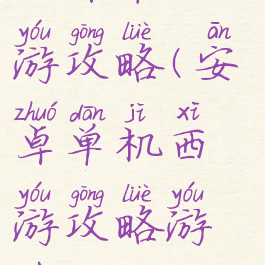 yóu gōng lüè ān
游攻略(安
zhuó dān jī xī
卓单机西
yóu gōng lüè yóu
游攻略游